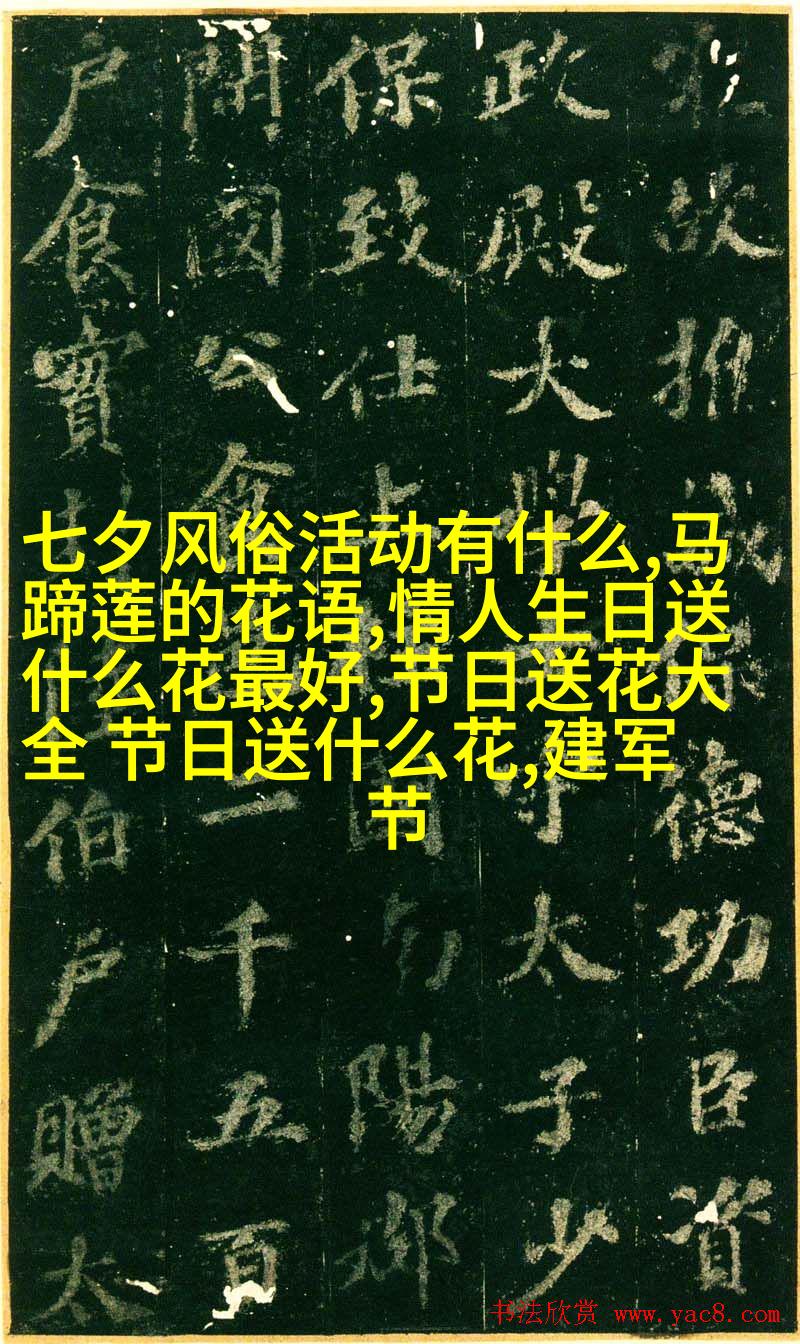 七夕风俗活动有什么,马
蹄莲的花语,情人生日送
什么花最好,节日送花大
全 节日送什么花,建军
节
故推誠保德功臣資
政殿大學守太子少
保致仕上國陽郡
開國公食二千五百
户食實伯户贈太
书法欣赏 www.yac8.com